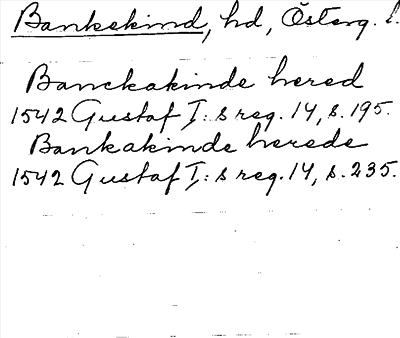 Bankekind, hd, Österg. l.
Banckakinde hered
1542 Gustaf I: s reg. 14, s. 195.
Bankakinde herede
1542 Gustaf I: s reg. 14, s. 235.